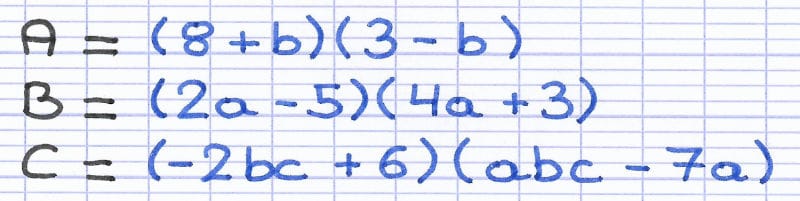 A = (8 + b)(3 - b)
B = (2a - 5)(4a + 3)
C = (-2bc + 6)(abc - 7a)